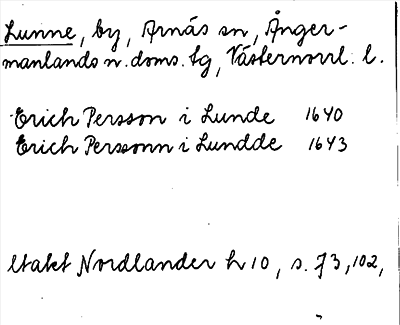 Lunne, by, Arnäs sn, Ånger-
manlands n. doms. tg, Västernorrl. l.
Erich Persson i Lunde 1640
Erich Perssonn i Lundde 1643
ltakt Nordlander h 10, s. 73, 102,